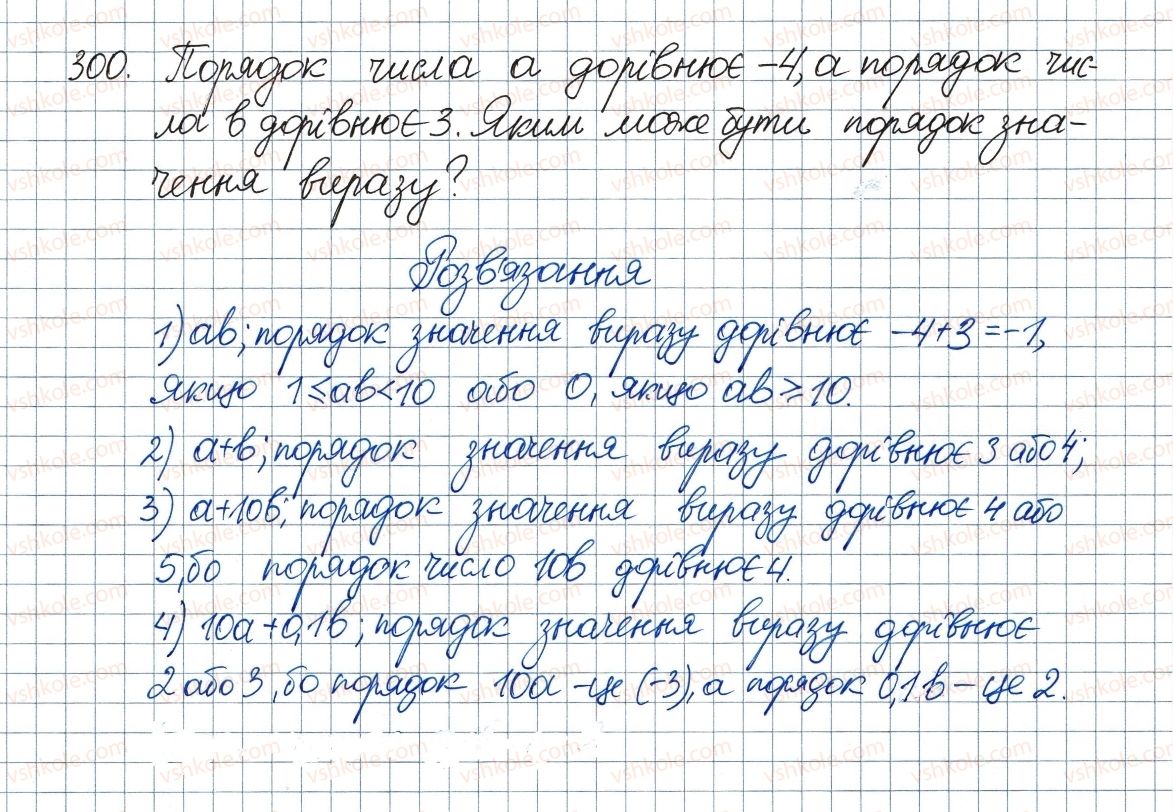 300. Порядок числа a дорівнює -4, а порядок чис-
ла в дорівнює 3. Яким може бути порядок зна-
чення виразу?
Розв'язання
1) ав; порядок значення виразу дорівнює -4+3=-1,
якщо 1≤ав<10 або 0, якщо ав≥10.
2) а+в; порядок значення виразу дорівнює 3 або 4;
3) а+10в; порядок значення виразу дорівнює 4 або
5, бо порядок число 10в дорівнює 4.
4) 10а+0,1в; порядок значення виразу дорівнює
2 або 3, бо порядок 10а - це (-3), а порядок 0,1в - це 2.